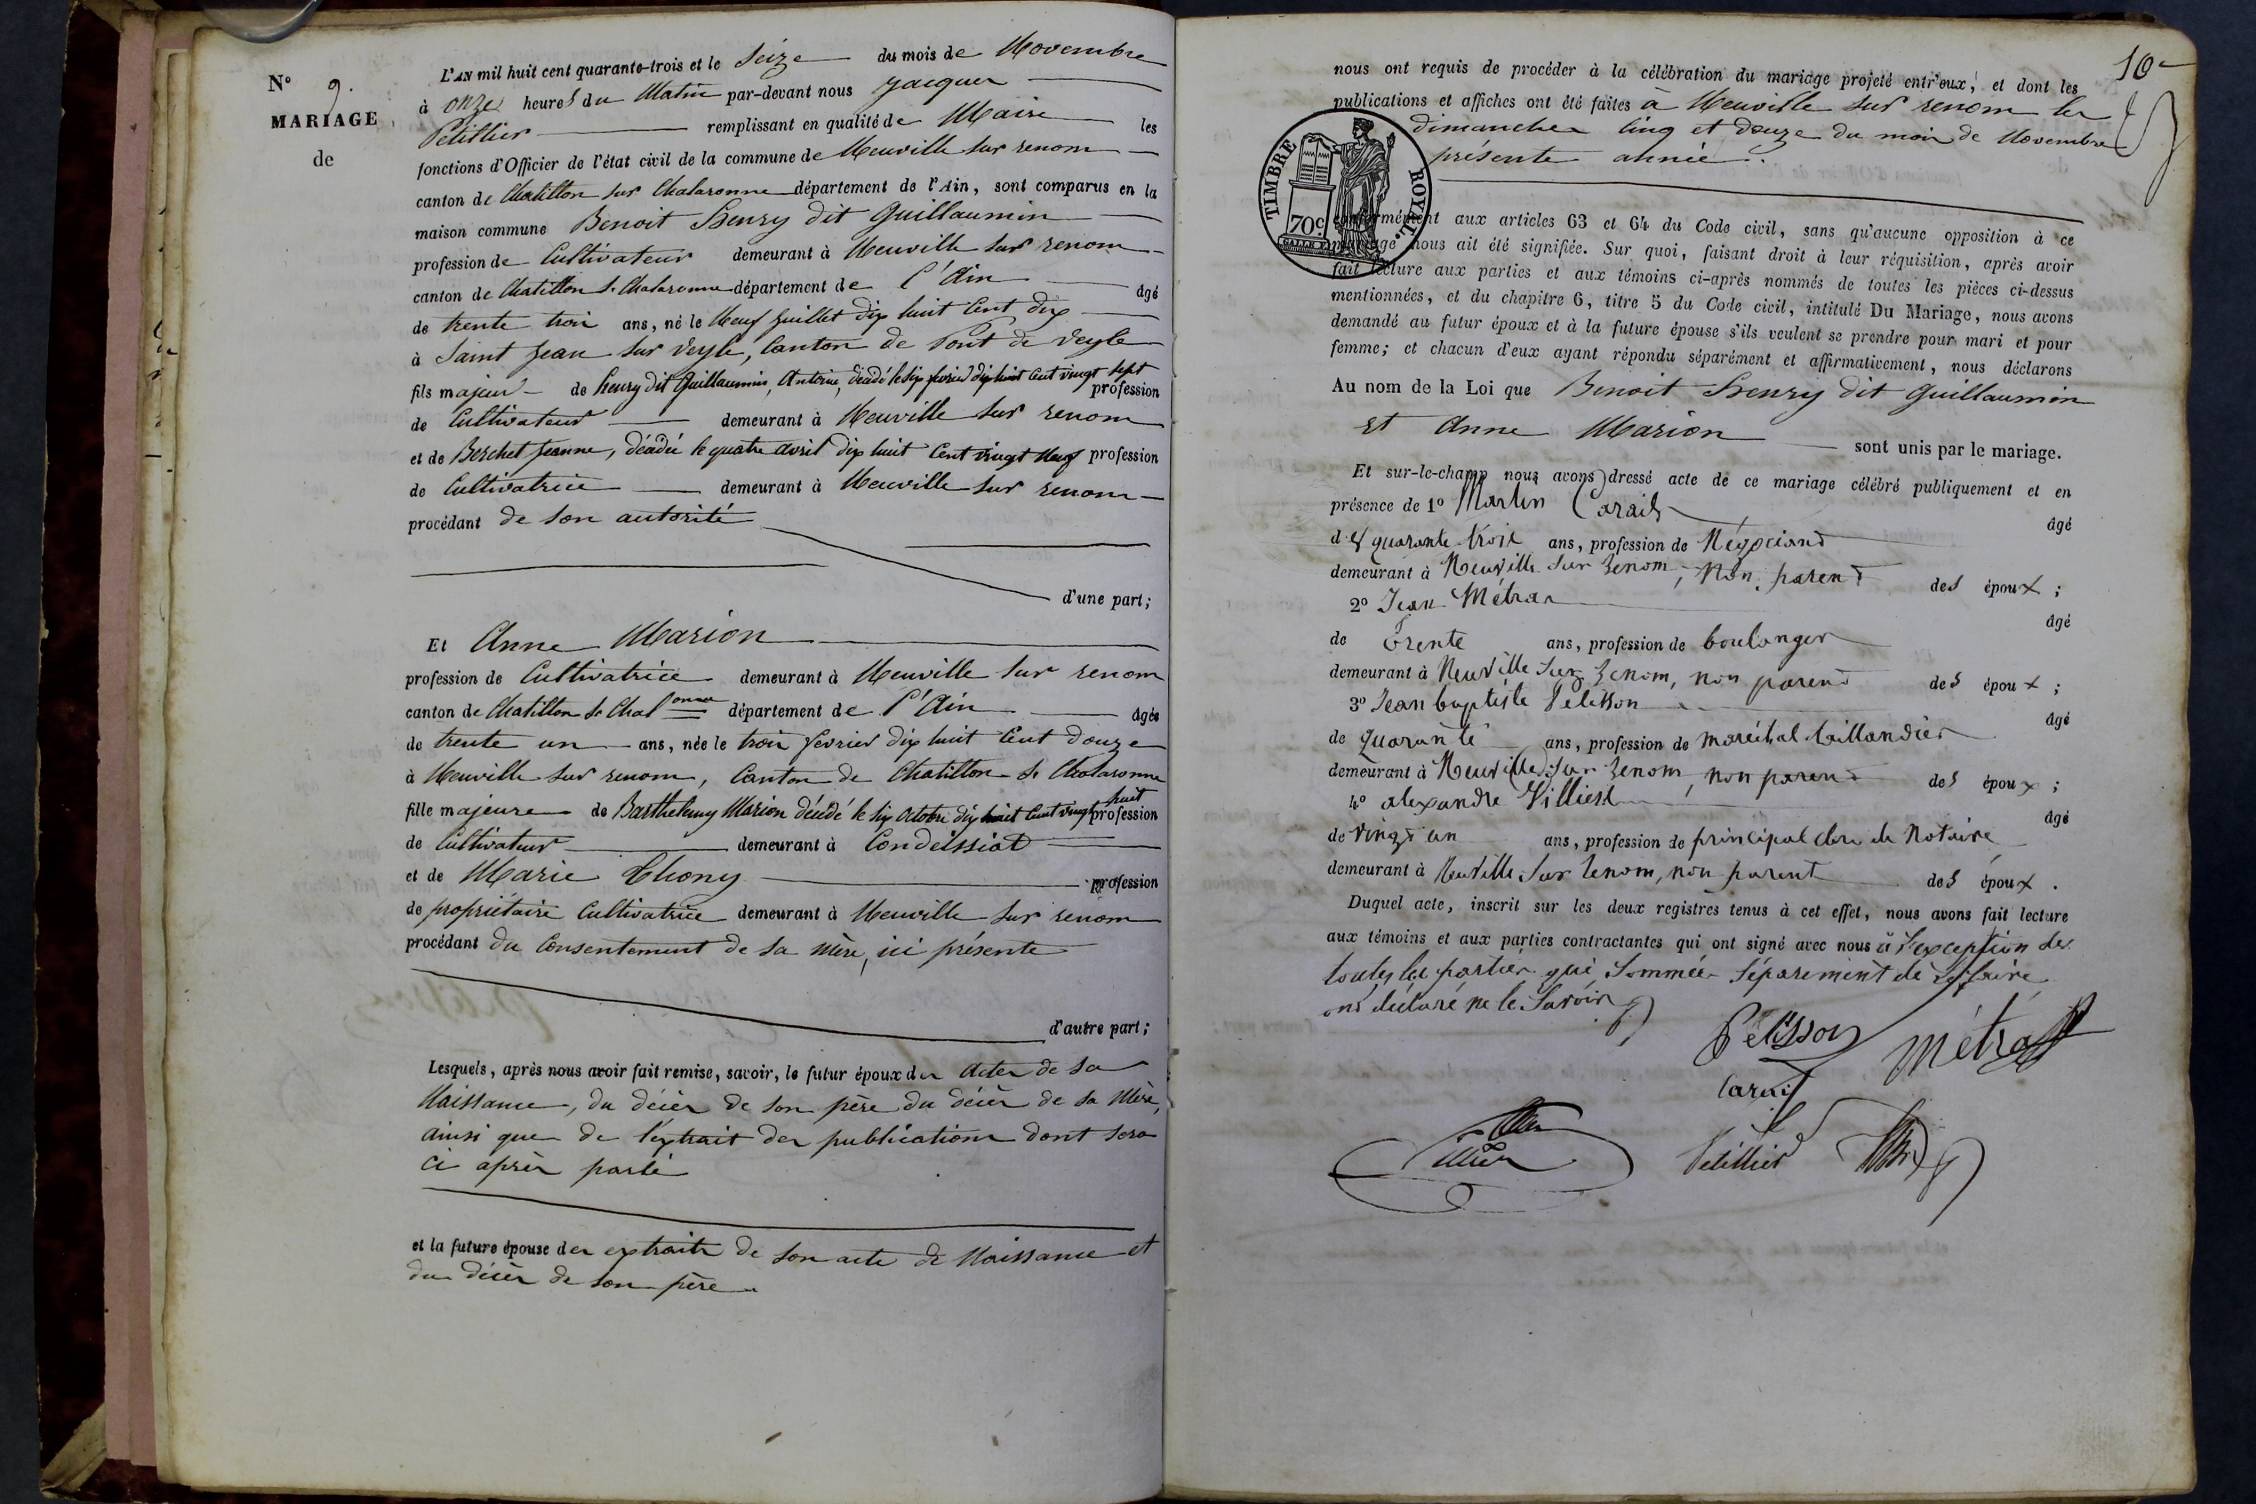 N° 9.
MARIAGE
de
L'AN mil huit cent quarante-trois et le Seize du mois de Novembre
à onze heures du Matin par-devant nous Jacques
Petitlier remplissant en qualité de Maire les
fonctions d'Officier de l'état civil de la commune de Neuville sur renom
canton de Chatillon sur Chalaronne département de l'Ain, sont comparus en la
maison commune Benoit henry dit Guillaumin
profession de Cultivateur demeurant à Neuville sur renom
canton de Chatillon S. Chalaronne département de l'Ain âgé
de trente trois ans, né le Neuf Juillet dix huit Cent dix
à Saint Jean sur Veyle, Canton de Pont de Veyle
fils majeur de henry dit Guillaumin, Antoine, décédé le six fevrier dix huit Cent vingt sept profession
de Cultivateur demeurant à Neuville sur renom
et de Berchet Jeanne, décédée le quatre avril dix huit Cent vingt Neuf profession
de Cultivatrice demeurant à Neuville sur renom
procédant de son autorité
d'une part;
Et Anne Marion
profession de Cultivatrice demeurant à Neuville sur renom
canton de Chatillon S. Chalonne département de l'Ain âgée
de trente un ans, née le trois fevrier dix huit Cent douze
à Neuville sur renom, Canton de Chatillon S. Chalaronne
fille majeure de Barthelemy Marion décédé le six octobre dix huit Cent vingt huit profession
de Cultivateur demeurant à Condeissiat
et de Marie Thony profession
de propriétaire Cultivatrice demeurant à Neuville sur renom
procédant du Consentement de sa mère, ici présente
d'autre part;
Lesquels, après nous avoir fait remise, savoir, le futur époux des Actes de sa
Naissance, du décès de son père du décès de sa Mère,
ainsi que de l'extrait des publications dont sera
ci après parlé
et la future épouse des extraits de son acte de Naissance et
du décès de son père
10e
nous ont requis de procéder à la célébration du mariage projeté entr'eux, et dont les
publications et affiches ont été faites à Neuville sur renom les
dimanches Cinq et douze du mois de Novembre
présente année.
TIMBRE ROYAL.
70c
conformément aux articles 63 et 64 du Code civil, sans qu'aucune opposition à ce
mariage nous ait été signifiée. Sur quoi, faisant droit à leur réquisition, après avoir
fait lecture aux parties et aux témoins ci-après nommés de toutes les pièces ci-dessus
mentionnées, et du chapitre 6, titre 5 du Code civil, intitulé Du Mariage, nous avons
demandé au futur époux et à la future épouse s'ils veulent se prendre pour mari et pour
femme; et chacun d'eux ayant répondu séparément et affirmativement, nous déclarons
Au nom de la Loi que Benoit henry dit Guillaumin
et Anne Marion sont unis par le mariage.
Et sur-le-champ nous avons dressé acte de ce mariage célébré publiquement et en
présence de 1° Martin Carait âgé
de quarante trois ans, profession de Négociand
demeurant à Neuville sur Renom, Non parent des époux;
2° Jean Métras âgé
de Trente ans, profession de boulanger
demeurant à Neuville Sur Renom, non parent des époux;
3° Jean baptiste Pelisson âgé
de Quarante ans, profession de maréchal taillandier
demeurant à Neuville Sur Renom, non parent des époux;
4° alexandre Villiest âgé
de vingt un ans, profession de principal clerc de Notaire
demeurant à Neuville Sur Renom, non parent des époux.
Duquel acte, inscrit sur les deux registres tenus à cet effet, nous avons fait lecture
aux témoins et aux parties contractantes qui ont signé avec nous à l'exception de
toutes les parties qui Sommées Séparément de le faire
ont déclaré ne le Savoir
Pelisson
Métras
Carait
Petitlier